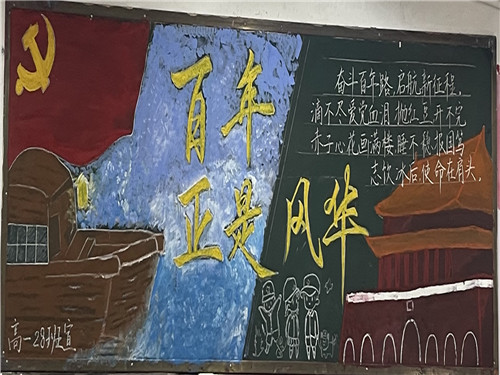 百年
正是风华
奋斗百年路,启航新征程,
滴不尽爱党血泪抛红豆开不完
赤子心花画满楼睡不稳报国笃
志饮冰后,使命在肩头。
高一28班宣